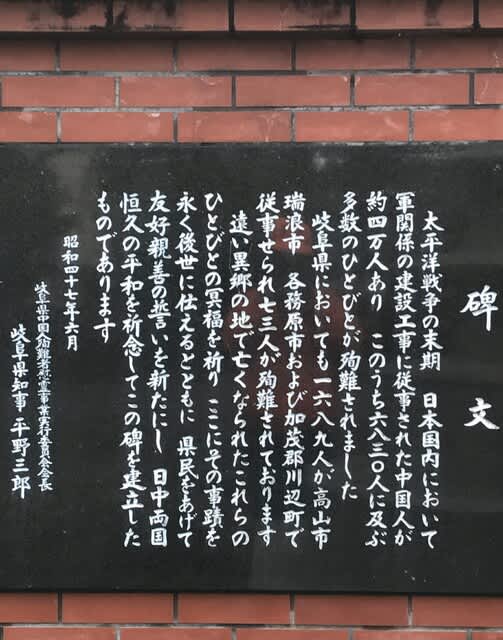 碑文
太平洋戦争の末期 日本国内において
軍関係の建設工事に従事された中国人が
約四万人あり このうち六八三〇人に及ぶ
多数のひとびとが殉難されました
岐阜県においても一六八九人が高山市
瑞浪市 各務原市および加茂郡川辺町で
従事せられ七三人が殉難されております
遠い異郷の地で亡くなられたこれらの
ひとびとの冥福を祈り ここにその事蹟を
永く後世に仕えるとともに 県民をあげて
友好親善の誓いを新たにし 日中両国
恒久の平和を祈念してこの碑を建立した
ものであります
昭和四十七年六月
岐阜県中国人殉難者慰霊事業実行委員会会長
岐阜県知事 平野三郎